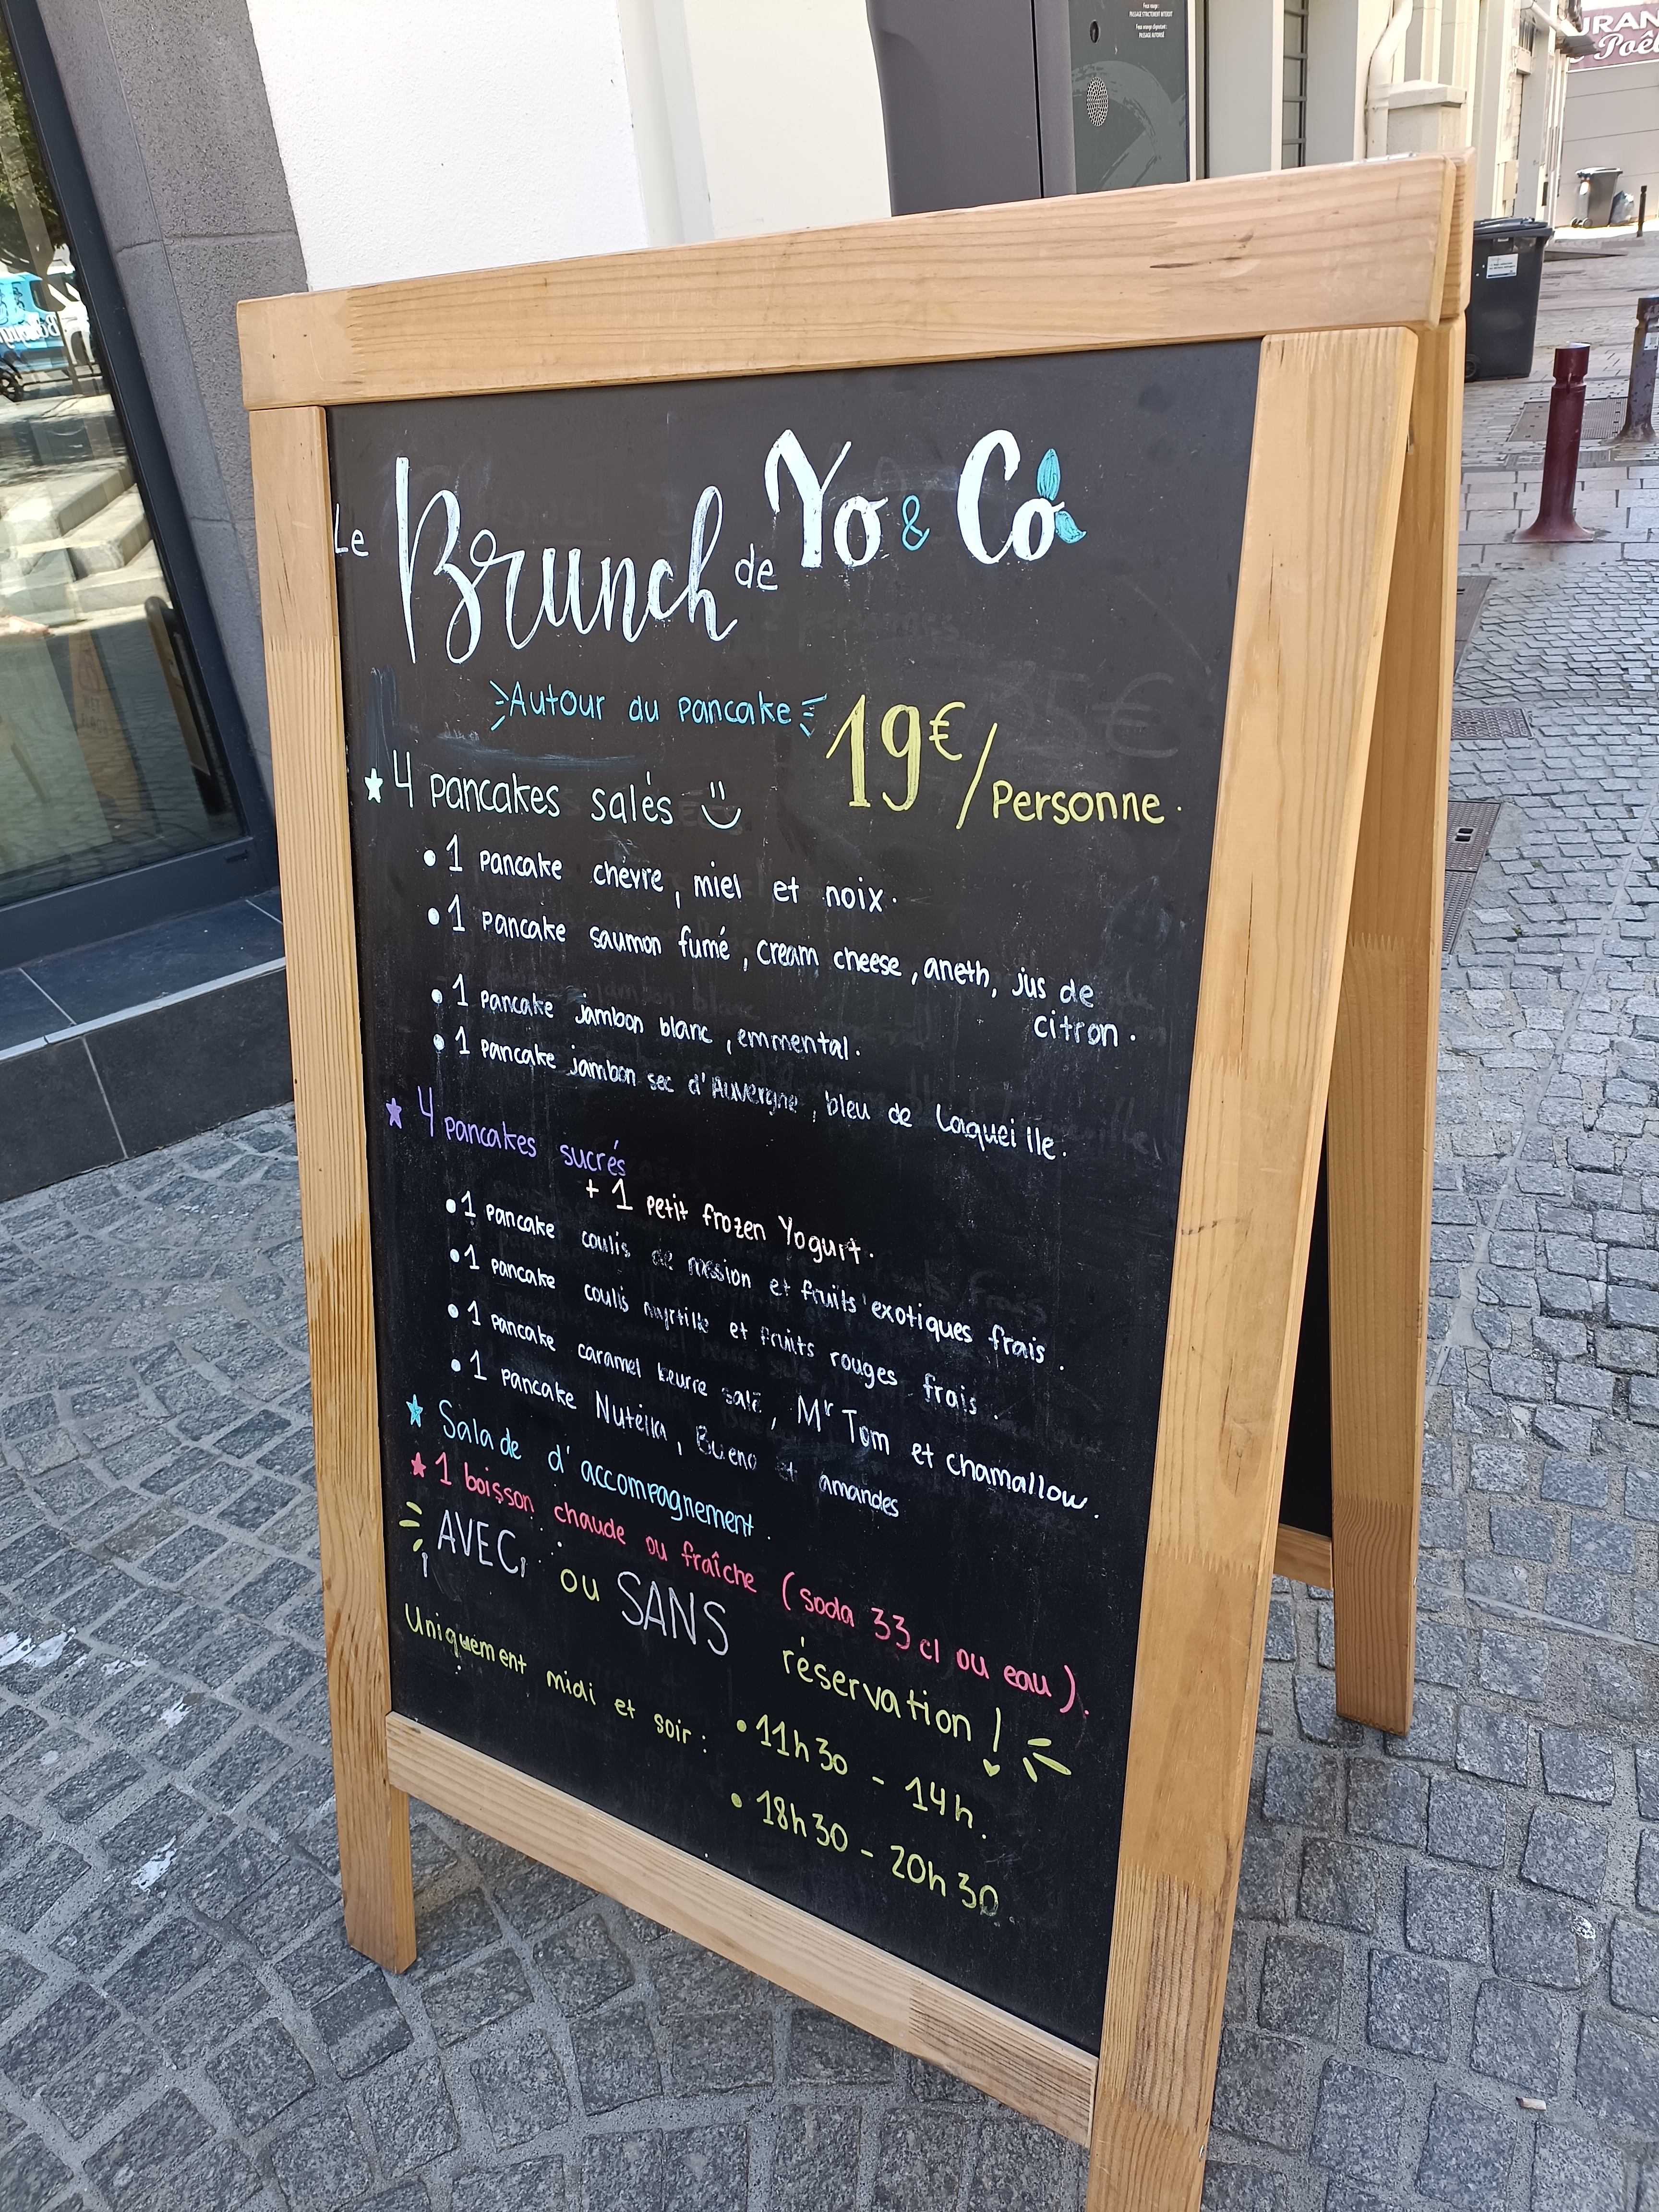 Feux rouge :
PASSAGE STRICTEMENT INTERDIT
Feux orange clignotant :
PASSAGE AUTORISÉ
URAN
Poêl
Le Brunch de Yo & Co
Autour du pancake
19€/Personne.
4 pancakes salés
• 1 pancake chèvre, miel et noix.
• 1 pancake saumon fumé, cream cheese, aneth, jus de
citron.
• 1 pancake jambon blanc, emmental.
• 1 pancake jambon sec d'Auvergne, bleu de Laqueille.
4 pancakes sucrés
+ 1 petit frozen Yogurt.
• 1 pancake coulis de passion et fruits exotiques frais.
• 1 pancake coulis myrtille et fruits rouges frais.
• 1 pancake caramel beurre salé, Mr Tom et chamallow.
• 1 pancake Nutella, Bueno et amandes
Salade d'accompagnement.
1 boisson chaude ou fraîche (soda 33 cl ou eau).
AVEC ou SANS réservation !
Uniquement midi et soir : • 11h30 - 14h.
• 18h30 - 20h30.